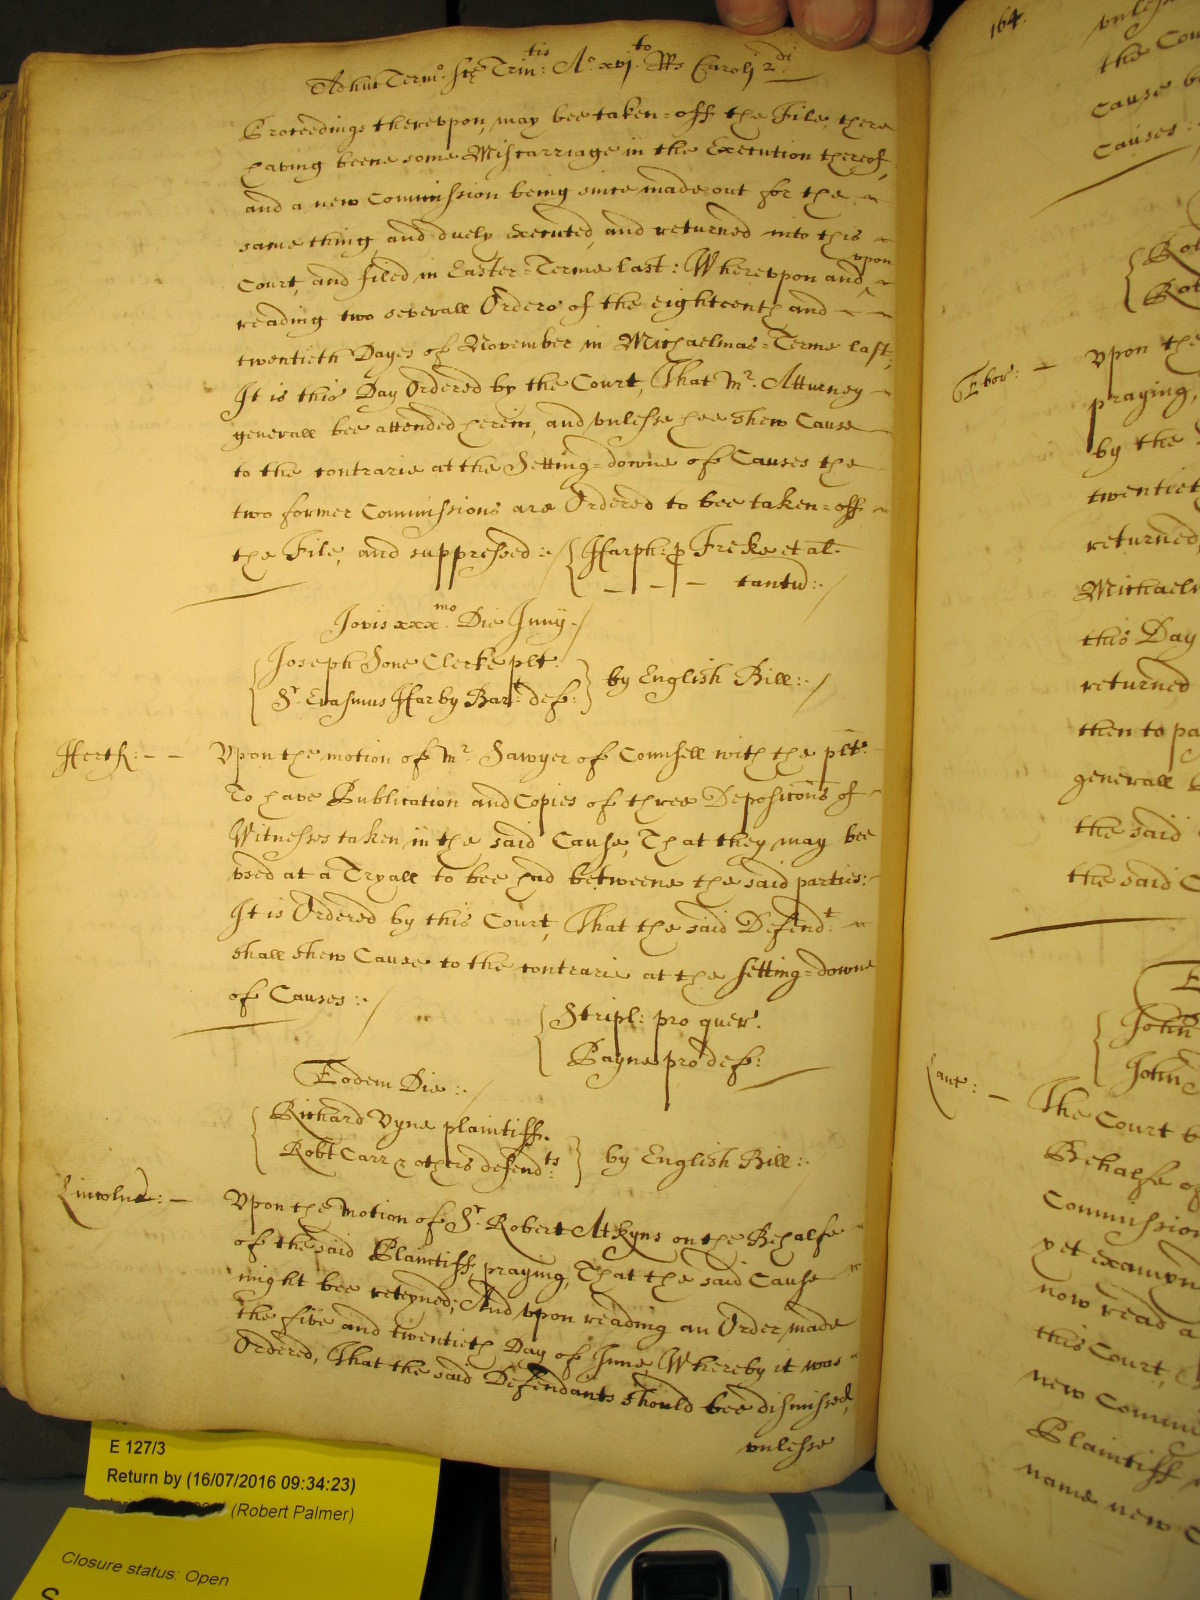 Adhuc Termo: Ste Trin:tis Ao xvjto RRs Caroli 2di:
Proceedings therevpon, may bee taken=off the File, there
having beene some Miscarriage in the Execution thereof,
and a new Commission being since made out for the
same thing, and duely executed, and returned into this
Court, and filed in Easter=Terme last: Wherevpon and vpon
reading two severall Orders of the eighteenth and
twentieth Dayes of November in Michaelmas=Terme last,
It is this Day Ordered by the Court, That Mr. Atturney
generall bee attended herein, and vnlesse hee shew Cause
to the contrarie at the Setting=downe of Causes the
two former Commissions are Ordered to bee taken=off
the File, and suppressed:. { Harph: p Freke et al.
tantu:.
Jovis xxxmo. Die Junij.
Joseph Sone Clerke plt.
Sr. Erasmus Harby Bart. def: } by English Bill:.
Hertf:
Vpon the motion of Mr. Sawyer of Counsell with the plt.
To have Publication and Copies of three Depositions of
Witnesses taken in the said Cause, That they may bee
vsed at a Tryall to bee had betweene the said parties:
It is Ordered by this Court, That the said Defendt.
shall shew Cause to the contrarie at the setting=downe
of Causes:.
Stripl: pro quer.
Payne pro def:
Eodem Die:.
Richard Vyne plaintiff.
Robt Carr & others defendts: } by English Bill:.
Lincolne:
Vpon the Motion of Sr. Robert Atkyns on the Behalfe
of the said Plaintiff, praying, That the said Cause
might bee reteyned; And vpon reading an Order, made
the five and twentieth Day of June, Whereby it was
Ordered, That the said Defendants should bee dismissed,
vnlesse
164.
vnless
the Cou
cause b
causes:
Rob
Ebor:
Vpon the
praying,
by the
twentiet
returned,
Michael
this Day
returned
then to pa
generall
the said
the said C
E
John
John
Canc:
The Court b
Behalfe of
Commission
yet examyn
now read a
this Court,
new Commi
Plaintiff
name new C
E 127/3
Return by (16/07/2016 09:34:23)
(Robert Palmer)
Closure status: Open
S